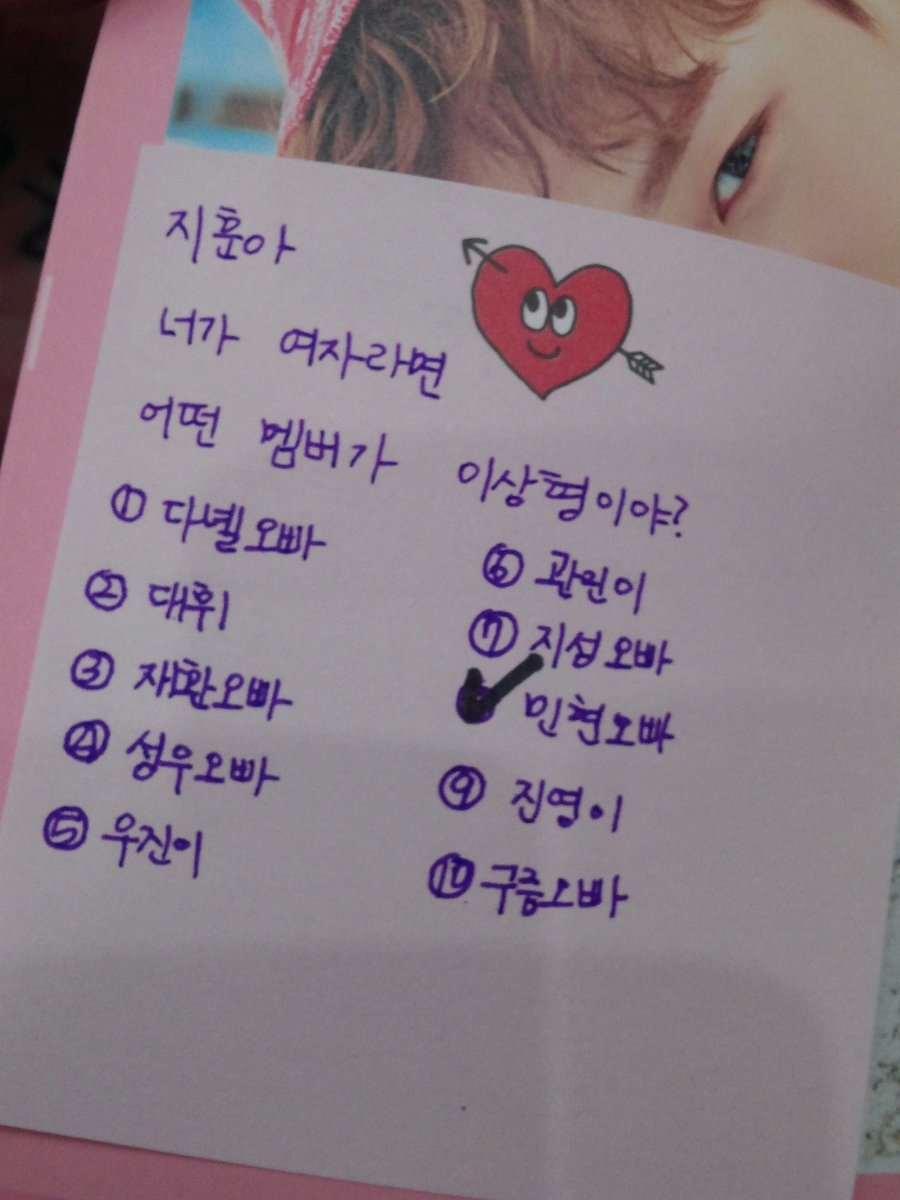 지훈아
너가 여자라면
어떤 멤버가 이상형이야?
① 다녤오빠
② 대휘
③ 재환오빠
④ 성우오빠
⑤ 우진이
⑥ 관린이
⑦ 지성오빠
민현오빠
⑨ 진영이
⑩ 구증오빠